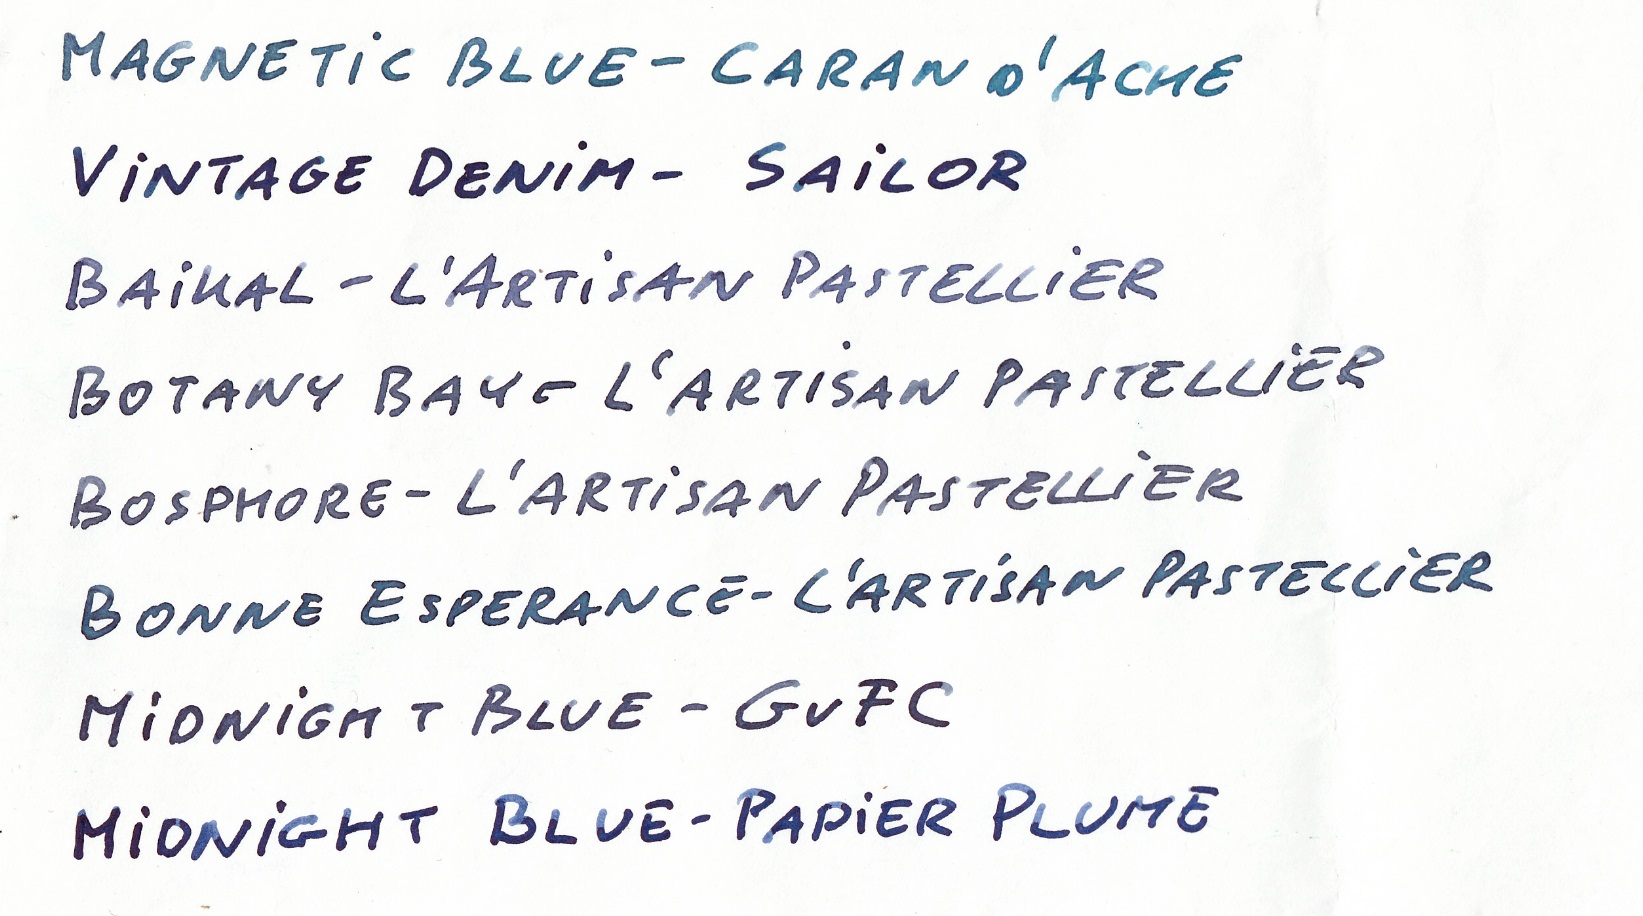 MAGNETIC BLUE - CARAN D'ACHE
VINTAGE DENIM - SAILOR
BAIKAL - L'ARTISAN PASTELLIER
BOTANY BAY - L'ARTISAN PASTELLIER
BOSPHORE - L'ARTISAN PASTELLIER
BONNE ESPERANCE - L'ARTISAN PASTELLIER
MIDNIGHT BLUE - GvFC
MIDNIGHT BLUE - PAPIER PLUME